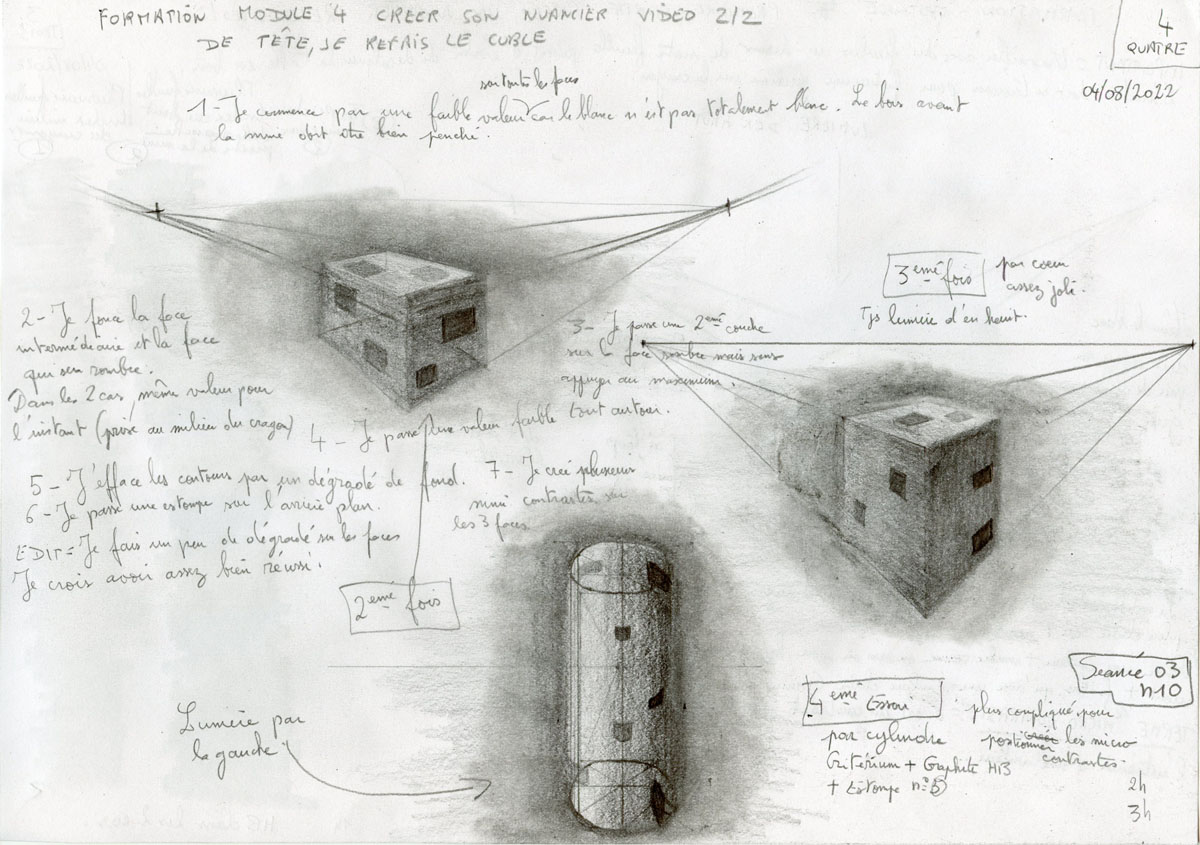 FORMATION MODULE 4 CREER SON NUANCIER VIDEO 2/2
DE TÊTE, JE REFAIS LE CUBLE
4
QUATRE
04/08/2022
sur toutes les faces
1- Je commence par une faible valeur car le blanc n'est pas totalement blanc. Le bois avant
la mine doit être bien penché.
3emê fois
par coeur
assez joli.
Tjs lumière d'en haut.
2- Je fonce la face
intermédiaire et la face
qui sera sombre.
Dans les 2 cas même valeur pour
l'instant (prise au milieu du crayon)
3- Je passe une 2emê couche
sur la face sombre mais sans
appuyer au maximum.
4- Je passe une valeur faible tout autour.
5- J'efface les contours par un dégradé de fond.
6- Je passe une estompe sur l'arrière plan.
EDIT = Je fais un peu de dégradé sur les faces
Je crois avoir assez bien réussi!
7- Je créé plusieurs
mini contrastes sur
les 3 faces
2eme fois
Lumière par
la gauche
Séance 03
n10
4emê Essai
par cylindre
Critérium + Graphite HB
+ Estompe n°5
plus compliqué pour
positionner les micro
contrastes.
2h
3h